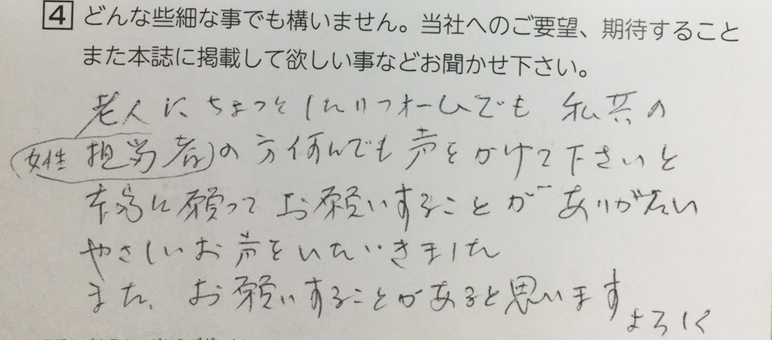 4 どんな些細な事でも構いません。当社へのご要望、期待すること
また本誌に掲載して欲しい事などお聞かせ下さい。
老人にちょっとしたリフォームでも 私共の
女性 担当者の方何んでも声をかけて下さいと
に願って お願いすることが ありがたい
やさしいお声をいただきました
また、お願いすることがあると思います
よろしく